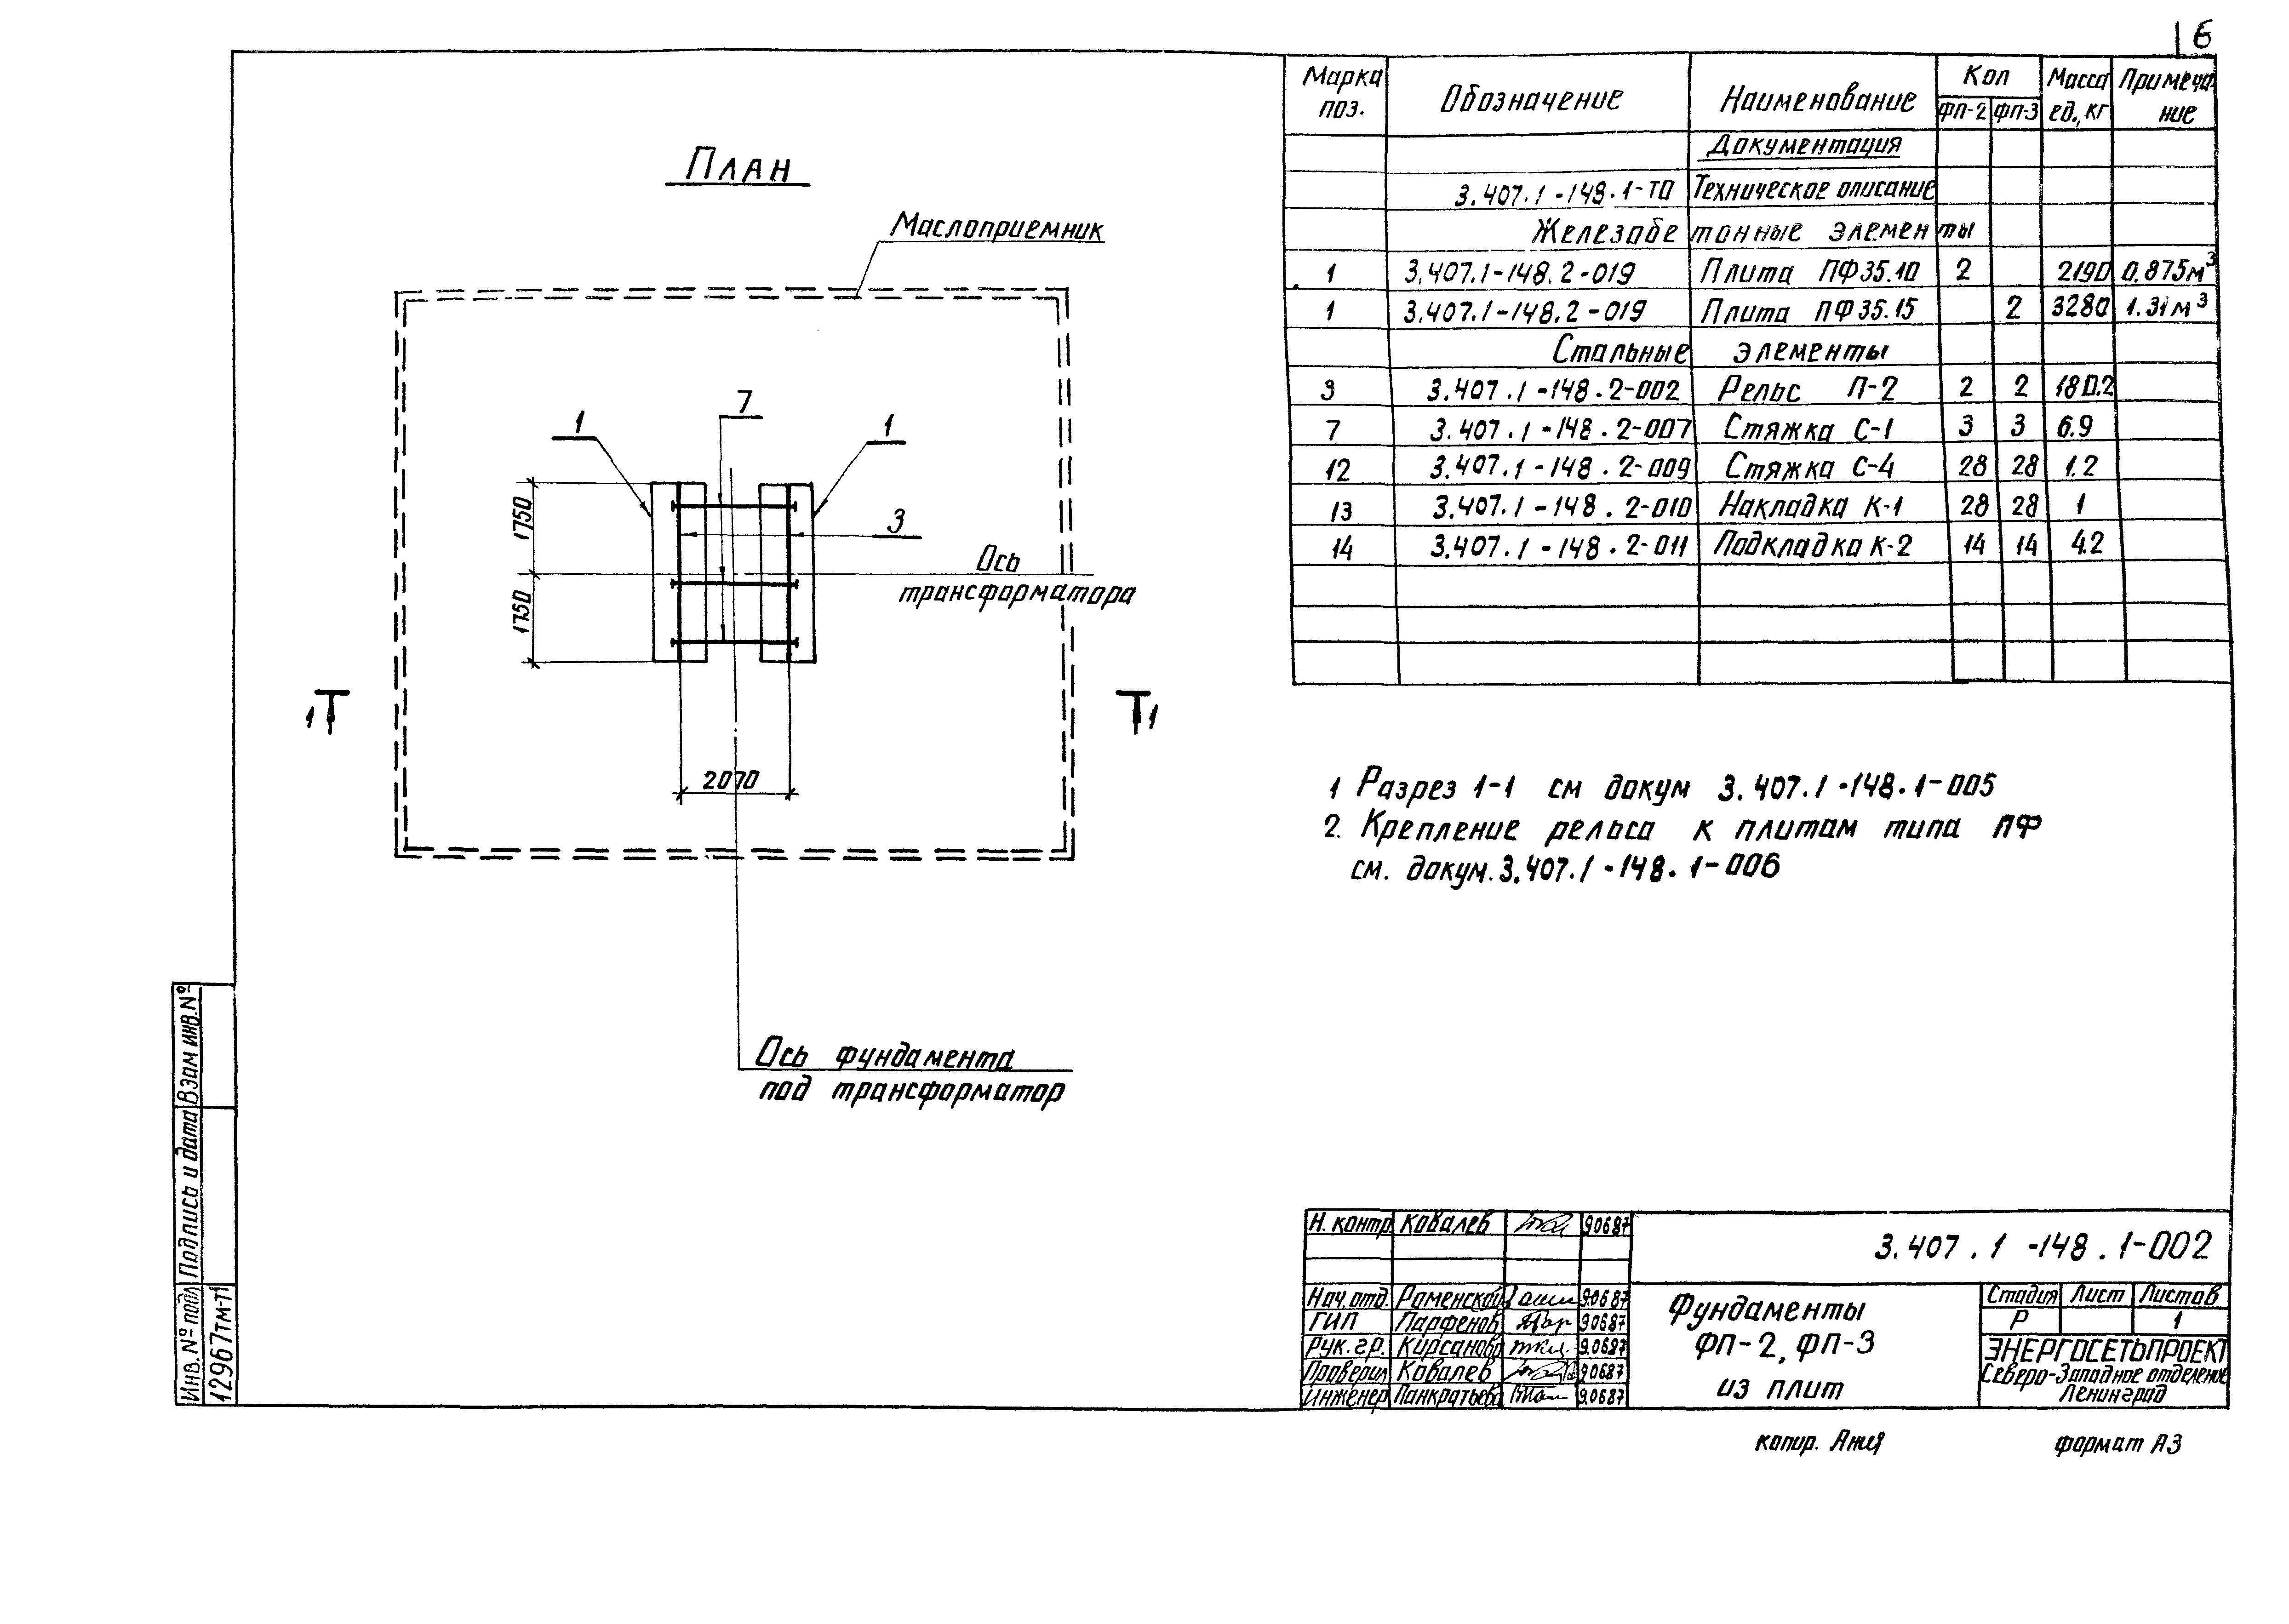 16
План
Маслоприемник
7
1
1
3
1750
1750
Ось
трансформатора
1
1
2070
Ось фундамента
под трансформатор
Марка поз. Обозначение Наименование Кол Масса ед., кг Примеча-ние
ФП-2 ФП-3
Документация
3.407.1-148.1-ТО Техническое описание
Железобетонные элементы
1 3.407.1-148.2-019 Плита ПФ35.10 2 2190 0.875м³
1 3.407.1-148.2-019 Плита ПФ35.15 2 3280 1.31м³
Стальные элементы
3 3.407.1-148.2-002 Рельс П-2 2 2 180.2
7 3.407.1-148.2-007 Стяжка С-1 3 3 6.9
12 3.407.1-148.2-009 Стяжка С-4 28 28 1.2
13 3.407.1-148.2-010 Накладка К-1 28 28 1
14 3.407.1-148.2-011 Подкладка К-2 14 14 4.2
1 Разрез 1-1 см докум 3.407.1-148.1-005
2. Крепление рельса к плитам типа ПФ
см. докум. 3.407.1-148.1-006
Взам инв. №
Подпись и дата
Инв. № подл
12967тм-т1
Н. контр. Ковалев 90687
Нач. отд. Раменской 9.0687
ГИП Парфенов 90687
Рук. гр. Кирсанова 9.0687
Проверил Ковалев 90687
Инженер Панкратьева 9.0687
3.407.1-148.1-002
Фундаменты
ФП-2, ФП-3
из плит
Стадия Лист Листов
Р 1
ЭНЕРГОСЕТЬПРОЕКТ
Северо-Западное отделение
Ленинград
копир. Ания
формат А3